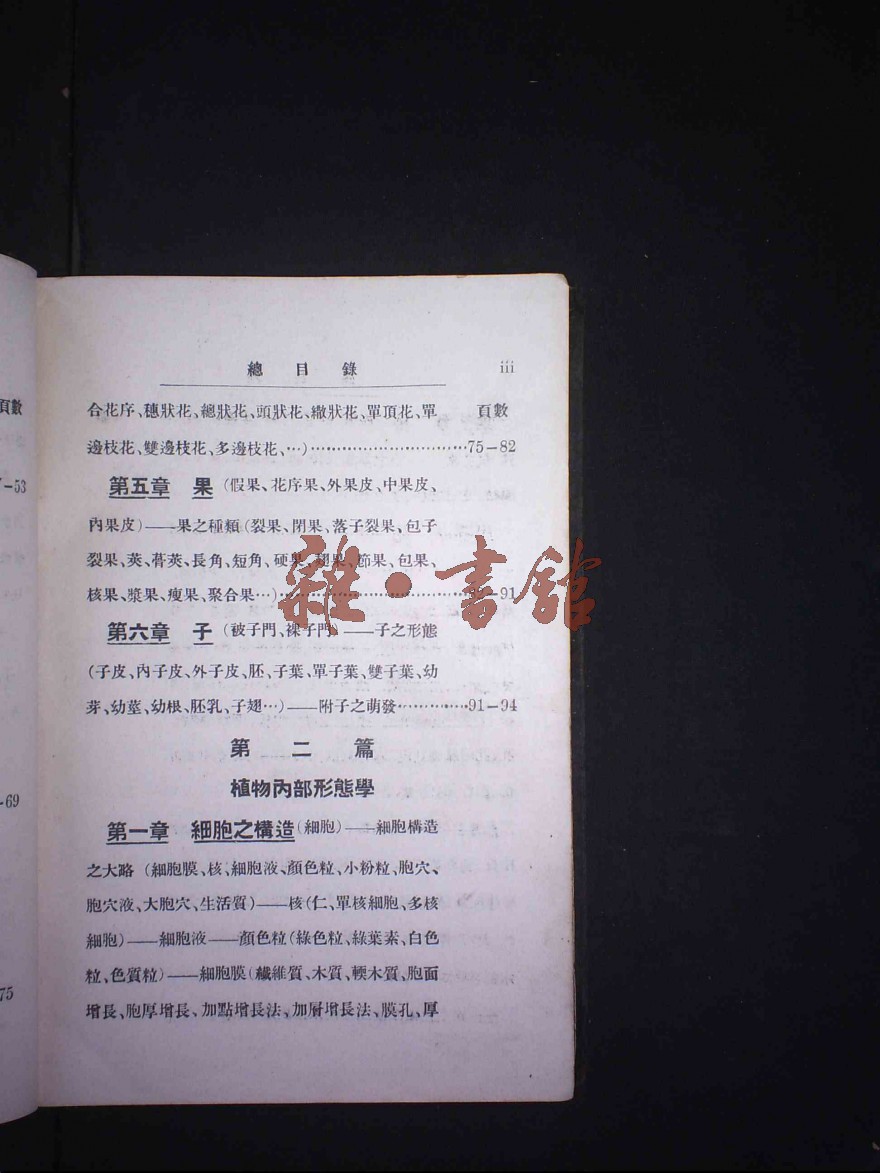 總目錄 iii
合花序、穗狀花、總狀花、頭狀花、繖狀花、單頂花、單 頁數
邊枝花、雙邊枝花、多邊枝花、…)……………………75–82
第五章 果 (假果、花序果、外果皮、中果皮、
內果皮)——果之種類(裂果、閉果、落子裂果、包子
裂果、莢、菩莢、長角、短角、硬果、翅果、節果、包果、
核果、漿果、瘦果、聚合果…)……………………82–91
第六章 子 (被子門、裸子門)——子之形態
(子皮、內子皮、外子皮、胚、子葉、單子葉、雙子葉、幼
芽、幼莖、幼根、胚乳、子翅…)——附子之萌發…………91–94
第二篇
植物內部形態學
第一章 細胞之構造(細胞)——細胞構造
之大略 (細胞膜、核、細胞液、顏色粒、小粉粒、胞穴、
胞穴液、大胞穴、生活質)——核(仁、單核細胞、多核
細胞)——細胞液——顏色粒(綠色粒、綠葉素、白色
粒、色質粒)——細胞膜(纖維質、木質、輭木質、胞面
增長、胞厚增長、加點增長法、加層增長法、膜孔、厚
頁數
–53
–69
75
雜·書館